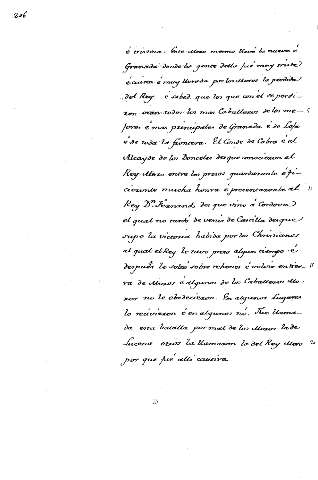 206
é mesma. Este Moro mesmo llevó la nueva á
Granada donde la gente della fué muy triste
é cuitada é muy llorada por los Moros la perdida
del Rey é sabed que los que con él se perdi-
eron eran todos los mas Caballeros de los me-
jores é mas principales de Granada é de Loja
é de toda la frontera. El Conde de Cabra é el
Alcayde de los Donceles desque conocieron al
Rey Moro entre los presos guardaronlo é fi-
cieronle mucha honra é presentaronlo al
Rey Dn. Fernando des que vino á Cordova
el qual no tardó de venir de Castilla desque
supo la victoria habida por los Christianos
al qual el Rey lo tuvo preso algun tiempo é
despues lo soltó sobre rehenes é volvió en tier-
ra de Moros é algunos de los Caballeros Mo-
ros no lo obedecieron. En algunos lugares
lo recivieron é en algunos nó. Fue llama-
da esta batalla por mal de los Moros la de
Lucena otros la llamaron la del Rey Moro
por que fué alli cautivo